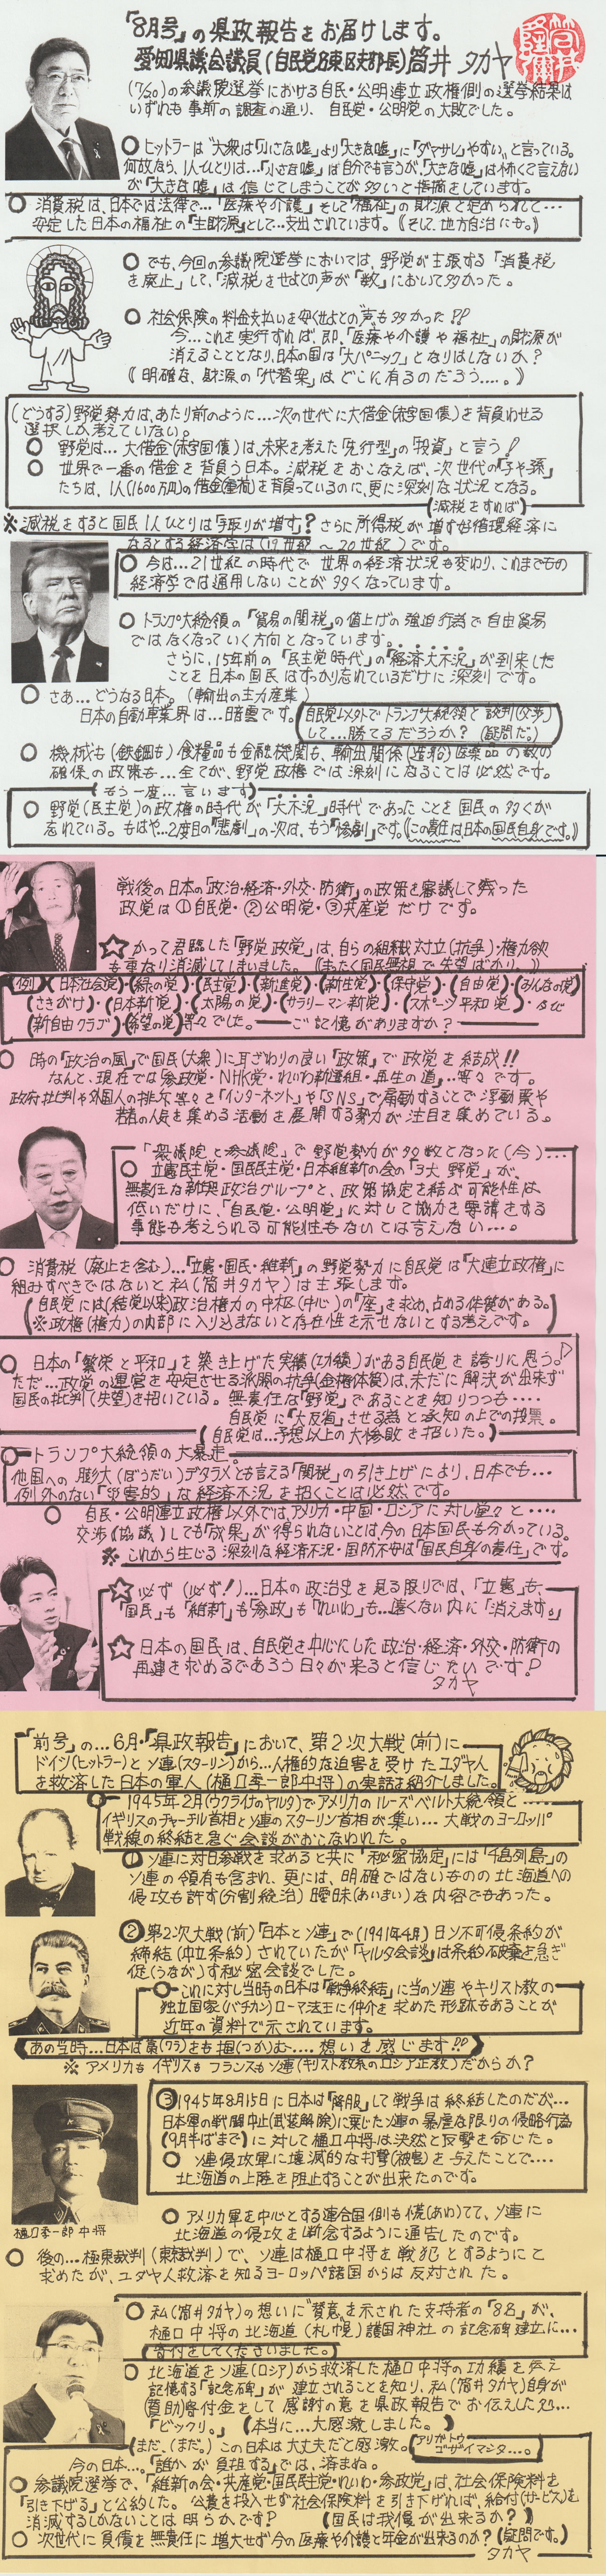 『8月号』の県政報告をお届けします。
愛知県議会議員(自民党名東区支部長)筒井タカヤ
(7/20)の参議院選挙における自民・公明連立政権側の選挙結果は
いずれも事前の調査の通り、自民党・公明党の大敗でした。
○ ヒットラーは“大衆は「小さな嘘」より「大きな嘘」に『ダマサレ』やすい”と言っている。
何故なら、1人ひとりは…「小さな嘘」は自分でも言うが、「大きな嘘」は怖くて言えない
が『大きな嘘』は信じてしまうことが多いと指摘をしています。
○ 消費税は、日本では法律で…『医療や介護』そして『福祉』の財源と定められて…
安定した日本の福祉の『主財源』として…支出されています。《そして、地方自治にも。》
○ でも、今回の参議院選挙においては、野党が主張する「消費税
を廃止」して、「減税をせよとの声が『数』において多かった。
○ 社会保険の料金支払いを安くせよとの“声も多かった!!
今…これを実行すれば即、「医療や介護や福祉」の財源が
消えることとなり、日本の国は「大パニック」となりはしないか?
《明確な、財源の「代替案」はどこに有るのだろう…。》
(どうする)野党勢力は、あたり前のように…次の世代に大借金(赤字国債)を背負わせる
選択しか考えていない。
○ 野党は…大借金(赤字国債)は、未来を考えた「先行型」の「投資」と言う!
○ 世界で一番の借金を背負う日本。減税をおこなえば、次世代の『子や孫』
たちは、1人(1600万円)の借金(重荷)を背負っているのに、更に深刻な状況となる。
(減税をすれば)
※減税をすると国民1人ひとりは「手取りが増す」?さらに所得税が増す好循環経済に
なるとする経済学は(19世紀~20世紀)です。
○ 今は…21世紀の時代で世界の経済状況も変わり、これまでもの
経済学では通用しないことが多くなっています。
○ トランプ大統領の『貿易の関税』の値上げの強迫行為で自由貿易
ではなくなっていく方向となっています。
さらに、15年前の「民主党時代」の「経済大不況」が到来した
ことを日本の国民はすっかり忘れているだけに深刻です。
○ さあ…どうなる日本。(輸出の主力産業)
日本の自動車業界は…暗雲です。(自民党以外でトランプ大統領と談判(交渉)
して…勝てるだろうか?(疑問だ。)
○ 機械も(鉄鋼も)食糧品も金融機関も、輸出関係(造船)医薬品の数の
確保の政策も…全てが、野党政権では深刻になることは必然です。
(もう一度…言います)
○ 野党(民主党)の政権の時代が「大不況」時代であったことを国民の多くが
忘れている。もはや…2度目の『悲劇』の次は、もう『惨劇』です。《この責任は、日本の国民自身です。》
戦後の日本の「政治・経済・外交・防衛」の政策を審議して残った
政党は①自民党・②公明党・③共産党だけです。
☆かって君臨した「野党政党」は、自らの組織対立(抗争)・権力欲
も重なり消滅してしまいました。《まったく国民無視で失望ばかり。》
(例)(日本社会党)・(緑の党)・(民主党)・(新進党)・(新生党)・(保守党)・(自由党)・(みんなの党)
(さきがけ)・(日本新党)・(太陽の党)・(サラリーマン新党)・(スポーツ平和党)・及び
(新自由クラブ)・(希望の党)等々でした。―ご記憶がありますか?―
○ 時の『政治の風』で国民(大衆)に耳ざわりの良い『政策』で政党を結成!!
なんと、現在では「参政党・NHK党・れいわ新選組・再生の道」…等々です。
政府批判や外国人の排斥等々を「インターネット」や「SNS」で扇動することで浮動票や
若者の人気を集める活動を展開する勢力が注目を集めている。
「衆議院と参議院」で野党勢力が多数となった(今)…
○ 立憲民主党・国民民主党・日本維新の会の「3大野党」が、
無責任な新興政治グループと、政策協定を結ぶ可能性は
低いだけに、「自民党・公明党」に対して協力を要請をする
事態も考えられる可能性もないとは言えない…。
○ 消費税(廃止を含む)…『立憲・国民・維新』の野党勢力に自民党は『大連立政権』に
組みすべきではないと私(筒井タカヤ)は主張します。
(自民党には(結党以来)政治権力の中枢(中心)の『座』を求め、占める体質がある。
※政権(権力)の内部に入り込まないと存在性を示せないとする考えです。)
○ 日本の『繁栄と平和』を築き上げた実績(功績)がある自民党を誇りに思う。!
ただ…政党の運営を安定させる派閥の抗争(金権体質)は、未だに解決が出来ず
国民の批判(失望)を招いている。無責任な「野党」であることを知りつつも……
自民党に「大反省」させる為と承知の上での投票。
(自民党は…予想以上の大惨敗を招いた。)
○ トランプ大統領の大暴走。
他国への膨大(ぼうだい)デタラメとも言える「関税」の引き上げにより、日本でも…
例外のない「災害的」な経済不況を招くことは必然です。
○ 自民・公明連立政権以外では、アメリカ・中国・ロシアに対し堂々と……
交渉(協議)しても「成果」が得られないことは、今の日本国民も分かっている。
※これから生じる深刻な経済不況・国防不安は「国民自身の責任」です。
☆必ず(必ず!)…日本の政治史を見る限りでは、「立憲」も、
「国民」も「維新」も「参政」も「れいわ」も…遠くない内に「消えます。」
☆日本の国民は、自民党を中心にした政治・経済・外交・防衛の
再建を求めるであろう日々が来ると信じたいです!
タカヤ
「前号」の…6月・「県政報告」において、第2次大戦(前)に
ドイツ(ヒットラー)とソ連(スターリン)から…人権的な迫害を受けたユダヤ人
を救済した日本の軍人(樋口季一郎中将)の実話を紹介しました。
○ 1945年2月(ウクライナのヤルタ)でアメリカのルーズベルト大統領と…
イギリスのチャーチル首相とソ連のスターリン首相が集い…大戦のヨーロッパ
戦線の終結を急ぐ会談がおこなわれた。
①ソ連に対日参戦を求めると共に「秘密協定」には「千島列島」の
ソ連の領有も含まれ、更には、明確ではないものの北海道への
侵攻も許す(分割統治)曖昧(あいまい)な内容でもあった。
②第2次大戦(前)「日本とソ連」で(1941年4月)日ソ不可侵条約が
締結(中立条約)されていたが「ヤルタ会談」は条約破棄を急ぎ
促(うなが)す秘密会談でした。
○これに対し当時の日本は「戦争終結」に当のソ連やキリスト教の
独立国家(バチカン)ローマ法王に仲介を求めた形跡もあることが
近年の資料で示されています。
あの当時…日本は藁(ワラ)をも掴(つか)む…想いを感じます!!
※アメリカもイギリスもフランスもソ連(キリスト教系のロシア正教)だからか?
③1945年8月15日に日本は「降服」して戦争は終結したのだが…
日本軍の戦闘中止(武装解除)に乗じたソ連の暴虐な限りの侵略行為
(9月半ばまで)に対して樋口中将は決然と反撃を命じた。
○ ソ連侵攻軍に壊滅的な打撃(被害)を与えたことで……
北海道の上陸を阻止することが出来たのです。
樋口季一郎中将
○ アメリカ軍を中心とする連合国側も慌(あわ)てて、ソ連に
北海道の侵攻を断念するように通告したのです。
○ 後の…極東裁判(東京裁判)で、ソ連は樋口中将を戦犯とするようにと
求めたが、ユダヤ人救済を知るヨーロッパ諸国からは反対された。
○ 私(筒井タカヤ)の想いに“賛意”を示された支持者の“8名”が、
樋口中将の北海道(札幌)護国神社の記念碑建立に…
(寄付をしてくださいました。)
○ 北海道をソ連(ロシア)から救済した樋口中将の功績を伝え
記憶する「記念碑」が建立されることを知り、私(筒井タカヤ)自身が
(賛助)寄付金をして感謝の意を県政報告でお伝えした処…
「ビックリ。」(本当に…大感激しました。)
(まだ、(まだ。)この日本は大丈夫だと感激。)アリガトウゴザイマシタ…。
今の日本…。「誰かが負担する」では、済まぬ。
○ 参議院選挙で、「維新の会・共産党・国民民主党・れいわ・参政党」は、社会保険料を
「引き下げる」と公約した。公費を投入せず社会保険料を引き下げれば、給付(サービス)を
消滅するしかないことは明らかです?(国民は我慢が出来るか?)
○ 次世代に負債を無責任に増大せず今の医療や介護と年金が出来るのか?(疑問です。)
タカヤ